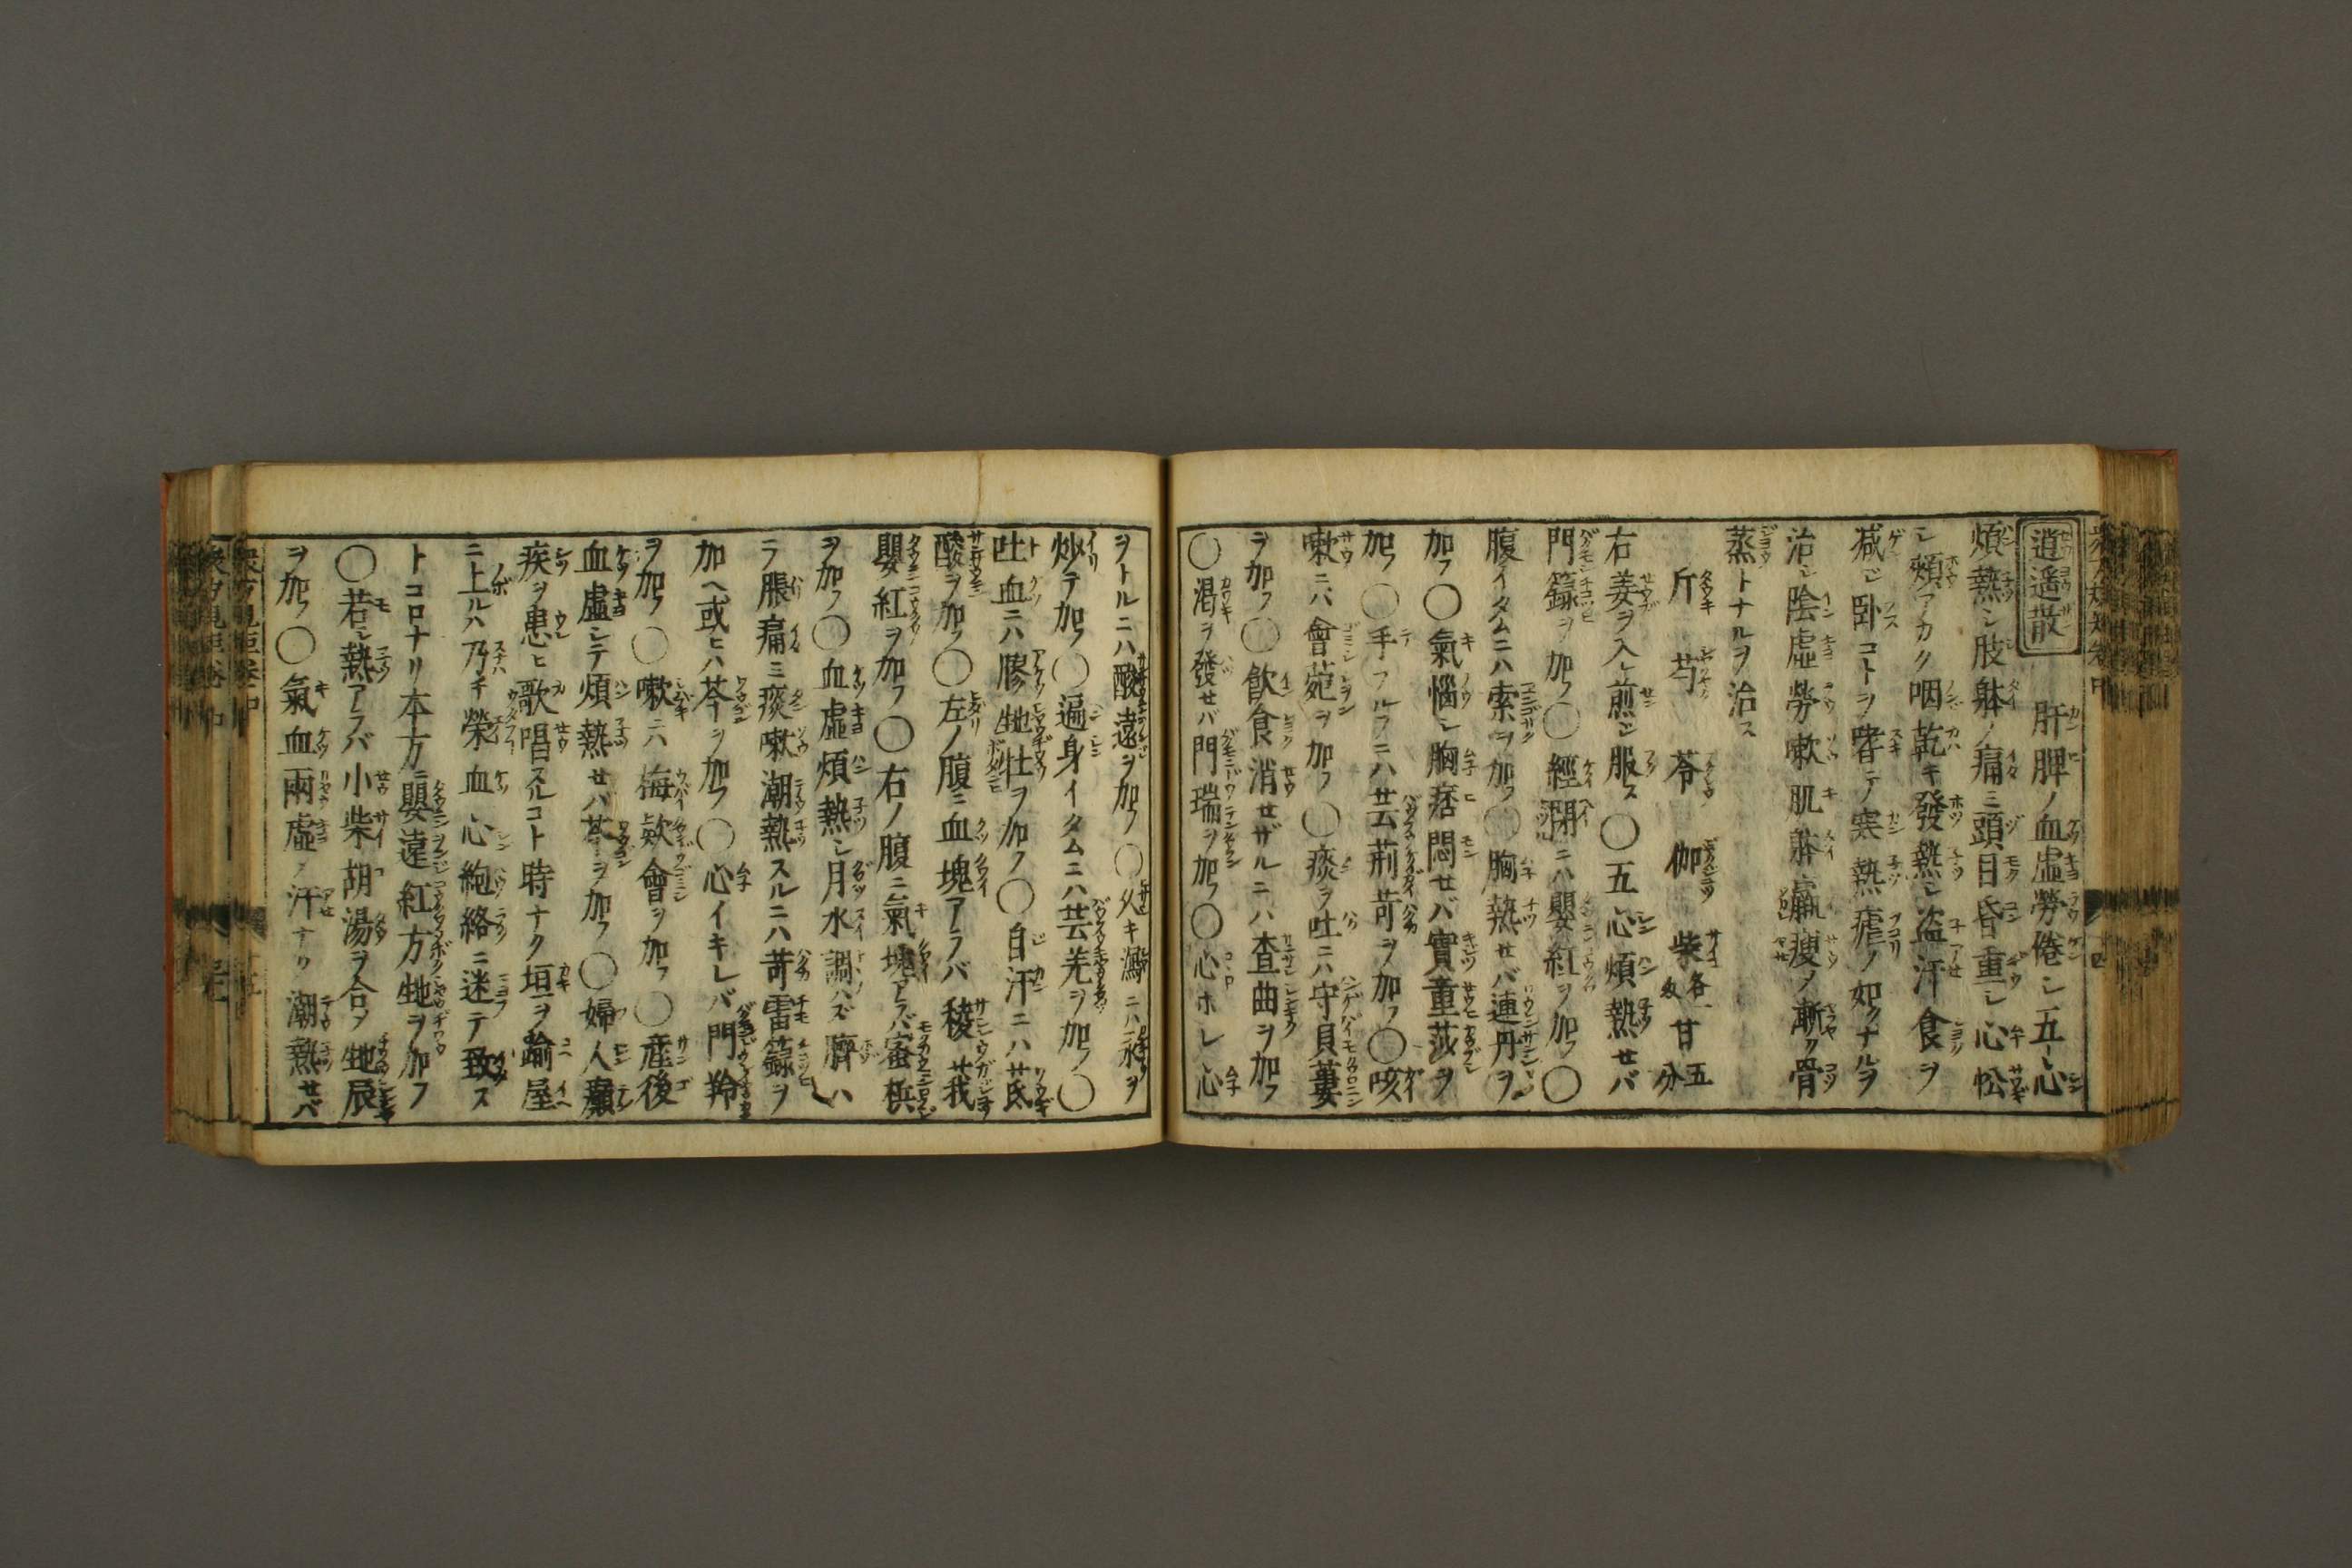 逍遥散 肝脾ノ血虚勞倦シ五心
煩熱シ肢躰ノ痛ミ頭目昏重シ心忪
シ頬アカク咽乾キ發熱シ盗汗食ヲ
减ジ卧コトヲ嗜テ寒熱瘧ノ如クナルヲ
治シ陰虛勞嗽肌躰羸瘦ノ漸ク骨
蒸トナルヲ治ス
斤 芍 苓 伽 柴各一 甘五分
右姜ヲ入レ煎ジ服ス〇五心煩熱せバ
門籙ヲ加フ〇經閉ニハ嬰紅ヲ加フ〇
腹イタムニハ索ヲ加フ〇胸熱せバ連丹ヲ
加フ〇氣惱シ胸痞悶せバ實童莎ヲ
加フ〇手フルフニハ芸荊苛ヲ加フ〇咳
嗽ニハ會菀ヲ加フ〇痰ヲ吐ニハ守貝蔞
ヲ加フ〇飲食消せザルニハ査曲ヲ加フ
〇渇ヲ發せバ門瑞ヲ加フ〇心ホレ心
ヲトルニハ酸遠ヲ加フ〇久キ瀉ニハ永ヲ
炒テ加フ〇遍身イタムニハ芸羌ヲ加フ〇
吐血ニハ膠地牡ヲ加フ〇自汗ニハ芪
酸ヲ加フ〇左ノ腹ニ血塊アラバ稜莪
嬰紅ヲ加フ〇右ノ腹ニ氣塊アラバ蜜梹
ヲ加フ〇血虛煩熱シ月水調ハズ臍ハ
ラ脹痛ミ痰嗽潮熱スルニハ苛雷籙ヲ
加ヘ或ヒハ芩ヲ加フ〇心イキレバ門羚
ヲ加フ〇嗽ニハ梅欵會ヲ加フ〇産後
血虛シテ煩熱せバ芩ヲ加フ〇婦人癲
疾ヲ患ヒ歌唱スルコト時ナク垣ヲ踰屋
ニ上ルハ乃チ榮血心絢絡ニ迷テ致ス
トコロナリ本方ニ嬰遠紅方地ヲ加フ
〇若シ熱アラバ小柴胡湯ヲ合ノ地辰
ヲ加フ〇氣血兩虛ノ汗ナク潮熱せバ